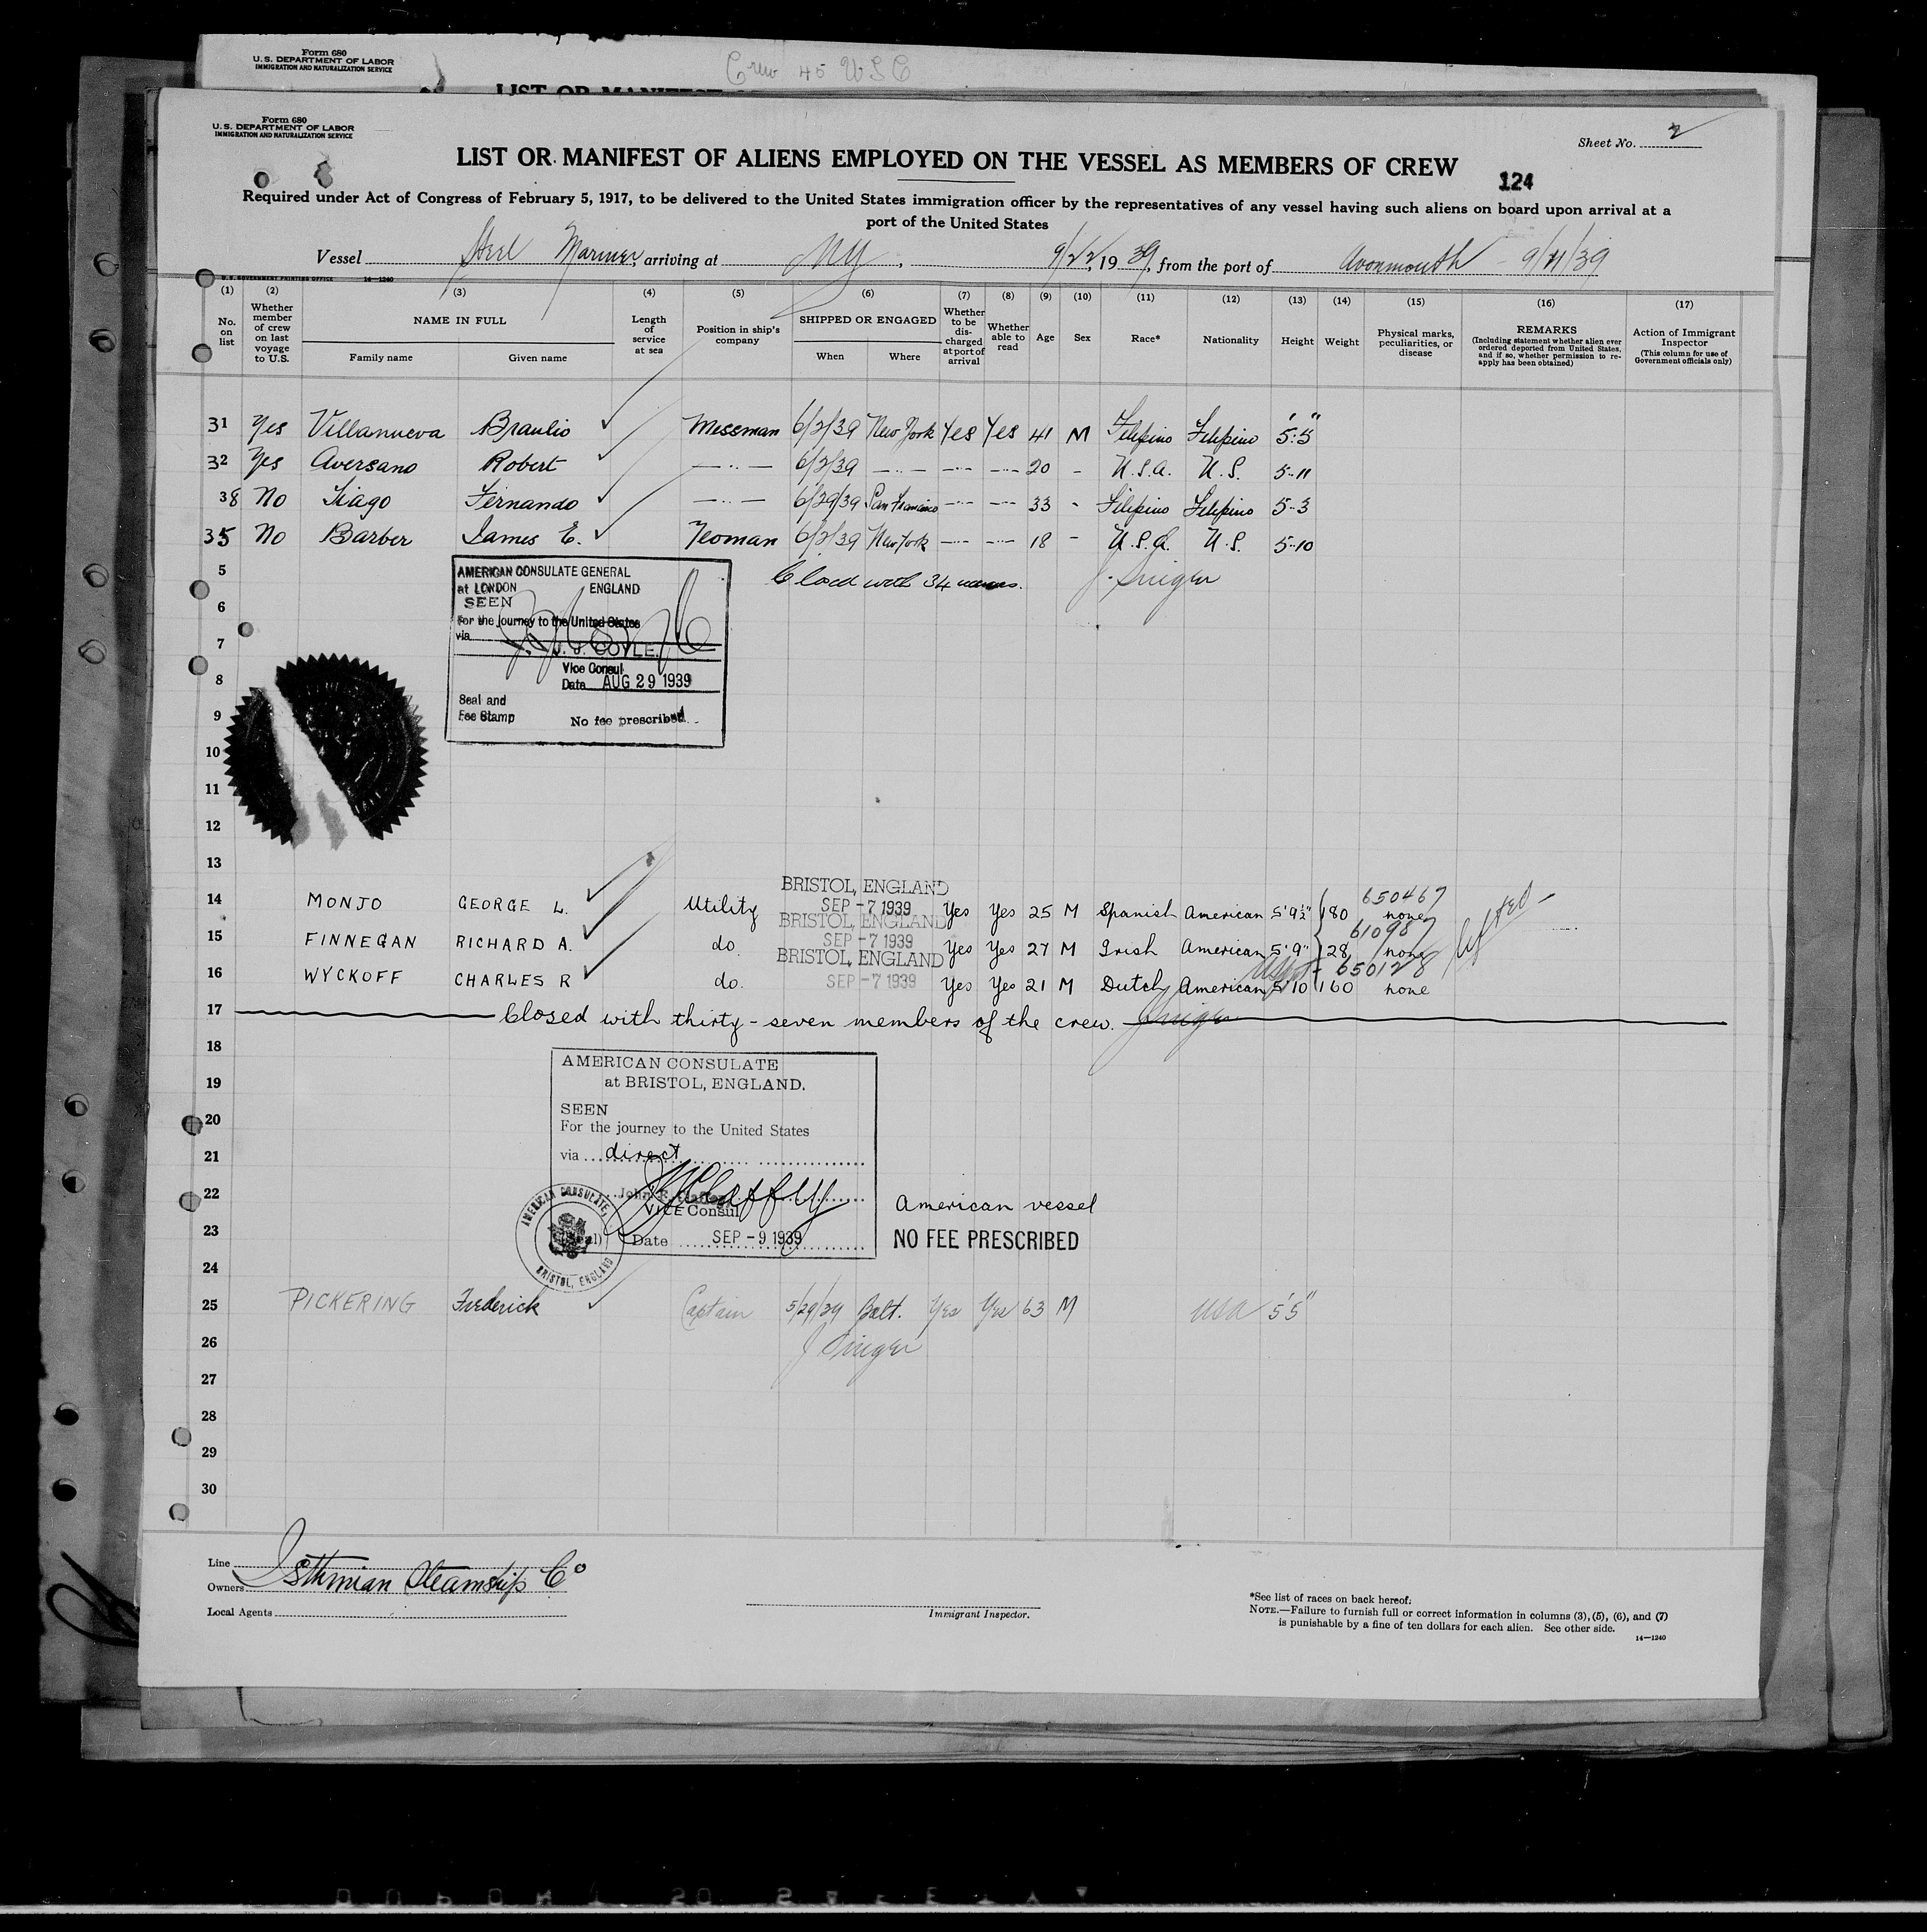 Form 680
U.S. DEPARTMENT OF LABOR
IMMIGRATION AND NATURALIZATION SERVICE
Crew 45 USC
LIST OR MANIFEST
Form 680
U.S. DEPARTMENT OF LABOR
IMMIGRATION AND NATURALIZATION SERVICE
Sheet No. 2
LIST OR MANIFEST OF ALIENS EMPLOYED ON THE VESSEL AS MEMBERS OF CREW
124
Required under Act of Congress of February 5, 1917, to be delivered to the United States immigration officer by the representatives of any vessel having such aliens on board upon arrival at a
port of the United States
Vessel Steel Mariner, arriving at NY, 9/22, 1939, from the port of Avonmouth - 9/11/39
U.S. GOVERNMENT PRINTING OFFICE 14-1240
(1) (2) (3) (4) (5) (6) (7) (8) (9) (10) (11) (12) (13) (14) (15) (16) (17)
No. on list
Whether member of crew on last voyage to U.S.
NAME IN FULL
Family name Given name
Length of service at sea
Position in ship's company
SHIPPED OR ENGAGED
When Where
Whether to be discharged at port of arrival
Whether able to read
Age
Sex
Race*
Nationality
Height
Weight
Physical marks, peculiarities, or disease
REMARKS
(Including statement whether alien ever ordered deported from United States, and if so, whether permission to re-apply has been obtained)
Action of Immigrant Inspector
(This column for use of Government officials only)
31 Yes Villanueva Braulio ✓ Messman 6/2/39 New York Yes Yes 41 M Filipino Filipino 5'.5"
32 Yes Aversano Robert ✓ —··— 6/2/39 —··— —··— —··— 20 - U.S.A. U.S. 5-11
38 No Tiago Fernando ✓ —··— 6/29/39 San Francisco —··— —··— 33 - Filipino Filipino 5-3
35 No Barber James E. ✓ Yeoman 6/2/39 New York —··— —··— 18 - U.S.A. U.S. 5-10
5 Closed with 34 names. J. Singer
AMERICAN CONSULATE GENERAL
at LONDON ENGLAND
SEEN
For the journey to the United States
via
J. J. COYLE
Vice Consul
Date AUG 29 1939
Seal and
Fee Stamp No fee prescribed
6
7
8
9
10
11
12
13
14 MONJO GEORGE L. ✓ Utility BRISTOL, ENGLAND SEP -7 1939 Yes Yes 25 M Spanish American 5'9½" 180 none 650467
15 FINNEGAN RICHARD A. ✓ do. BRISTOL, ENGLAND SEP -7 1939 Yes Yes 27 M Irish American 5'9" 128 none 610987
16 WYCKOFF CHARLES R ✓ do. BRISTOL, ENGLAND SEP -7 1939 Yes Yes 21 M Dutch American 5'10 160 none 650128
17 Closed with thirty-seven members of the crew. Singer
18
19
20
21
22
23
24
AMERICAN CONSULATE
at BRISTOL, ENGLAND.
SEEN
For the journey to the United States
via direct
VICE Consul
Date SEP -9 1939
AMERICAN CONSULATE, BRISTOL, ENGLAND
American vessel
NO FEE PRESCRIBED
25 PICKERING Frederick ✓ Captain 5/29/39 Balt. Yes Yes 63 M USA 5'5"
J Singer
26
27
28
29
30
Line
Owners Isthmian Steamship Co
Local Agents
Immigrant Inspector.
*See list of races on back hereof.
NOTE.—Failure to furnish full or correct information in columns (3), (5), (6), and (7)
is punishable by a fine of ten dollars for each alien. See other side.
14—1240